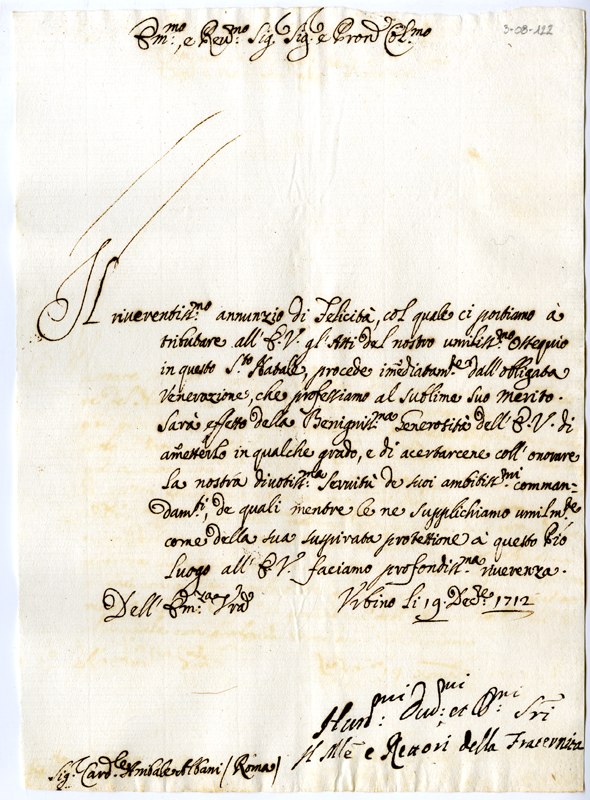 3-08-122
Em.mo, e Rev.mo Sig. Sig. e Pron. Col.mo
Il riverentiss.mo annunzio di Felicità, col quale ci portiamo à
tributare all'E.V. gl'Atti del nostro umiliss.mo Ossequio
in questo S.to Natale, procede imediatam.te dall'obligata
Venerazione, che professiamo al sublime suo Merito.
Sarà effetto della Benigniss.ma Generosità dell'E.V. di
ametterlo in qualche grado, e di accertarcene coll'onorare
la nostra divotiss.ma Servitù de suoi ambitiss.mi comman-
dam.ti, de quali mentre le ne supplichiamo umilm.te,
come della sua suspirata protettione à questo Pio
Luogo all'E.V. faciamo profondiss.ma riverenza.
Dell'Em.za V.ra Urbino li 19. Dec.re 1712
Hum.mi Div.mi et Obl.mi S.ri
Il M.lé e Rettori della Fraternita
Sig.r Card.le Anibale Albani (Roma)